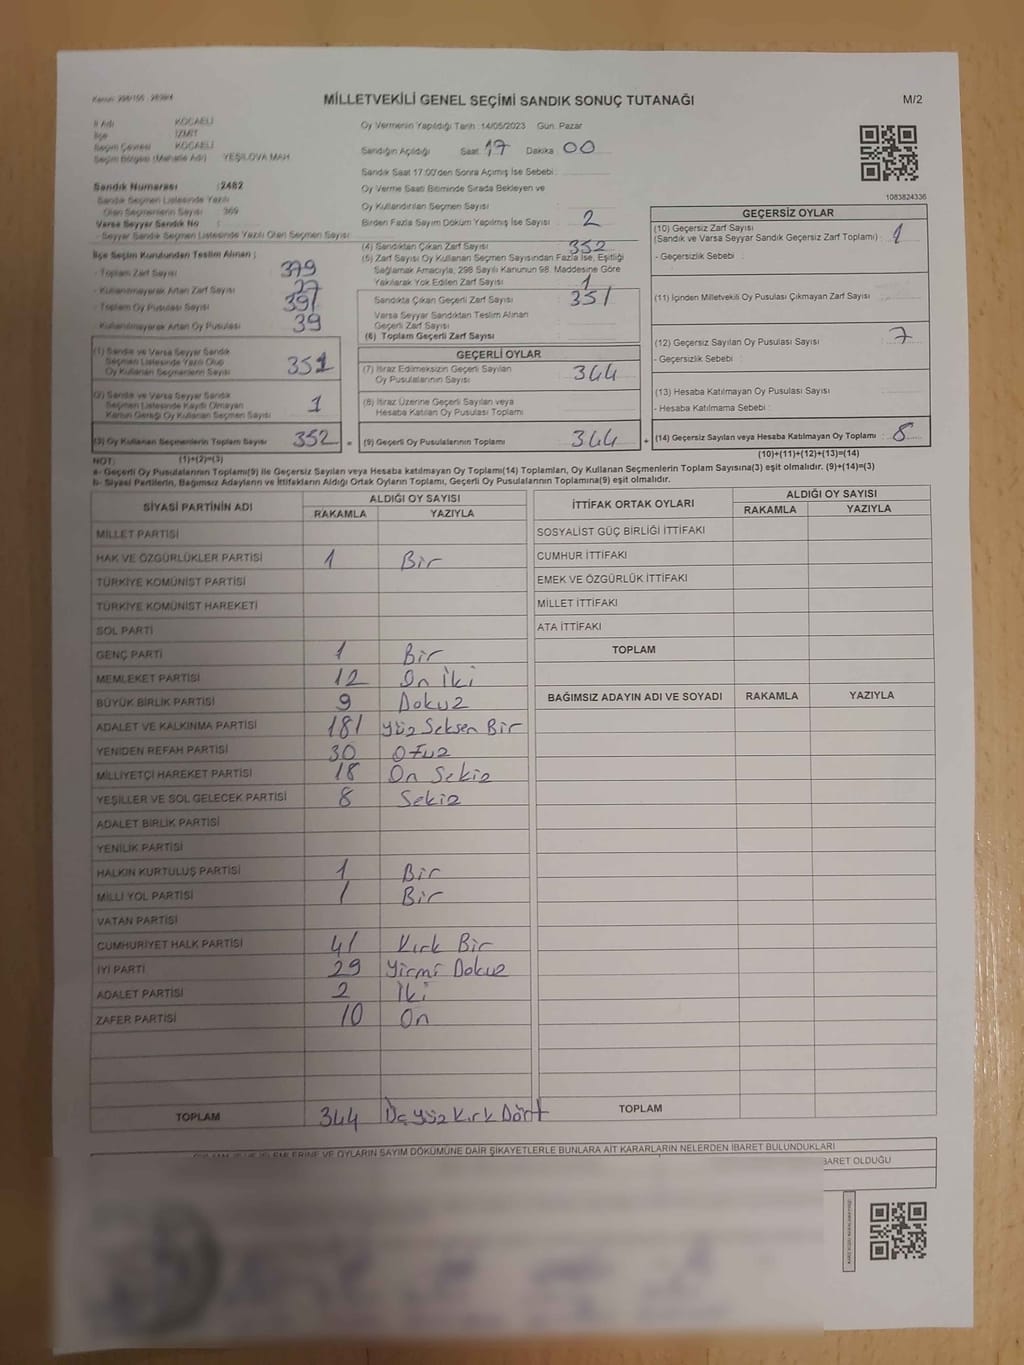 Kanun: 298/105 - 2839/4
MİLLETVEKİLİ GENEL SEÇİMİ SANDIK SONUÇ TUTANAĞI
M/2
İl Adı KOCAELİ
İlçe İZMİT
Seçim Çevresi KOCAELİ
Seçim Bölgesi (Mahalle Adı) YEŞİLOVA MAH.
Sandık Numarası :2482
Sandık Seçmen Listesinde Yazılı
Olan Seçmenlerin Sayısı : 369
Varsa Seyyar Sandık No :
- Seyyar Sandık Seçmen Listesinde Yazılı Olan Seçmen Sayısı:
İlçe Seçim Kurulundan Teslim Alınan ;
- Toplam Zarf Sayısı 379
- Kullanılmayarak Artan Zarf Sayısı 27
- Toplam Oy Pusulası Sayısı 391
- Kullanılmayarak Artan Oy Pusulası 39
(1) Sandık ve Varsa Seyyar Sandık
Seçmen Listesinde Yazılı Olup
Oy Kullanan Seçmenlerin Sayısı 351
(2) Sandık ve Varsa Seyyar Sandık
Seçmen Listesinde Kaydı Olmayan
Kanun Gereği Oy Kullanan Seçmen Sayısı 1
(3) Oy Kullanan Seçmenlerin Toplam Sayısı 352 =
(1)+(2)=(3)
Oy Vermenin Yapıldığı Tarih : 14/05/2023 Gün: Pazar
Sandığın Açıldığı Saat 17 Dakika 00
Sandık Saat 17:00'den Sonra Açımış İse Sebebi :
Oy Verme Saati Bitiminde Sırada Bekleyen ve
Oy Kullandırılan Seçmen Sayısı
Birden Fazla Sayım Döküm Yapılmış İse Sayısı 2
(4) Sandıktan Çıkan Zarf Sayısı 352
(5) Zarf Sayısı Oy Kullanan Seçmen Sayısından Fazla İse, Eşitliği
Sağlamak Amacıyla, 298 Sayılı Kanunun 98. Maddesine Göre
Yakılarak Yok Edilen Zarf Sayısı 1
Sandıkta Çıkan Geçerli Zarf Sayısı 351
Varsa Seyyar Sandıktan Teslim Alınan
Geçerli Zarf Sayısı
(6) Toplam Geçerli Zarf Sayısı
GEÇERLİ OYLAR
(7) İtiraz Edilmeksizin Geçerli Sayılan
Oy Pusulalarının Sayısı 344
(8) İtiraz Üzerine Geçerli Sayılan veya
Hesaba Katılan Oy Pusulası Toplamı
(9) Geçerli Oy Pusulalarının Toplamı 344 +
1083824336
GEÇERSİZ OYLAR
(10) Geçersiz Zarf Sayısı
(Sandık ve Varsa Seyyar Sandık Geçersiz Zarf Toplamı) 1
- Geçersizlik Sebebi :
(11) İçinden Milletvekili Oy Pusulası Çıkmayan Zarf Sayısı
(12) Geçersiz Sayılan Oy Pusulası Sayısı 7
- Geçersizlik Sebebi :
(13) Hesaba Katılmayan Oy Pusulası Sayısı
- Hesaba Katılmama Sebebi :
(14) Geçersiz Sayılan veya Hesaba Katılmayan Oy Toplamı 8
(10)+(11)+(12)+(13)=(14)
NOT:
a- Geçerli Oy Pusulalarının Toplamı(9) ile Geçersiz Sayılan veya Hesaba katılmayan Oy Toplamı(14) Toplamları, Oy Kullanan Seçmenlerin Toplam Sayısına(3) eşit olmalıdır. (9)+(14)=(3)
b- Siyasi Partilerin, Bağımsız Adayların ve İttifakların Aldığı Ortak Oyların Toplamı, Geçerli Oy Pusulalarının Toplamına(9) eşit olmalıdır.
SİYASİ PARTİNİN ADI ALDIĞI OY SAYISI
RAKAMLA YAZIYLA
MİLLET PARTİSİ
HAK VE ÖZGÜRLÜKLER PARTİSİ 1 Bir
TÜRKİYE KOMÜNİST PARTİSİ
TÜRKİYE KOMÜNİST HAREKETİ
SOL PARTİ
GENÇ PARTİ 1 Bir
MEMLEKET PARTİSİ 12 On İki
BÜYÜK BİRLİK PARTİSİ 9 Dokuz
ADALET VE KALKINMA PARTİSİ 181 Yüz Seksen Bir
YENİDEN REFAH PARTİSİ 30 Otuz
MİLLİYETÇİ HAREKET PARTİSİ 18 On Sekiz
YEŞİLLER VE SOL GELECEK PARTİSİ 8 Sekiz
ADALET BİRLİK PARTİSİ
YENİLİK PARTİSİ
HALKIN KURTULUŞ PARTİSİ 1 Bir
MİLLİ YOL PARTİSİ 1 Bir
VATAN PARTİSİ
CUMHURİYET HALK PARTİSİ 41 Kırk Bir
İYİ PARTİ 29 Yirmi Dokuz
ADALET PARTİSİ 2 İki
ZAFER PARTİSİ 10 On
TOPLAM 344 Üç Yüz Kırk Dört
İTTİFAK ORTAK OYLARI ALDIĞI OY SAYISI
RAKAMLA YAZIYLA
SOSYALİST GÜÇ BİRLİĞİ İTTİFAKI
CUMHUR İTTİFAKI
EMEK VE ÖZGÜRLÜK İTTİFAKI
MİLLET İTTİFAKI
ATA İTTİFAKI
TOPLAM
BAĞIMSIZ ADAYIN ADI VE SOYADI RAKAMLA YAZIYLA
TOPLAM
VE OYLARIN SAYIM DÖKÜMÜNE DAİR ŞİKAYETLERLE BUNLARA AİT KARARLARIN NELERDEN İBARET BULUNDUKLARI
BARET OLDUĞU